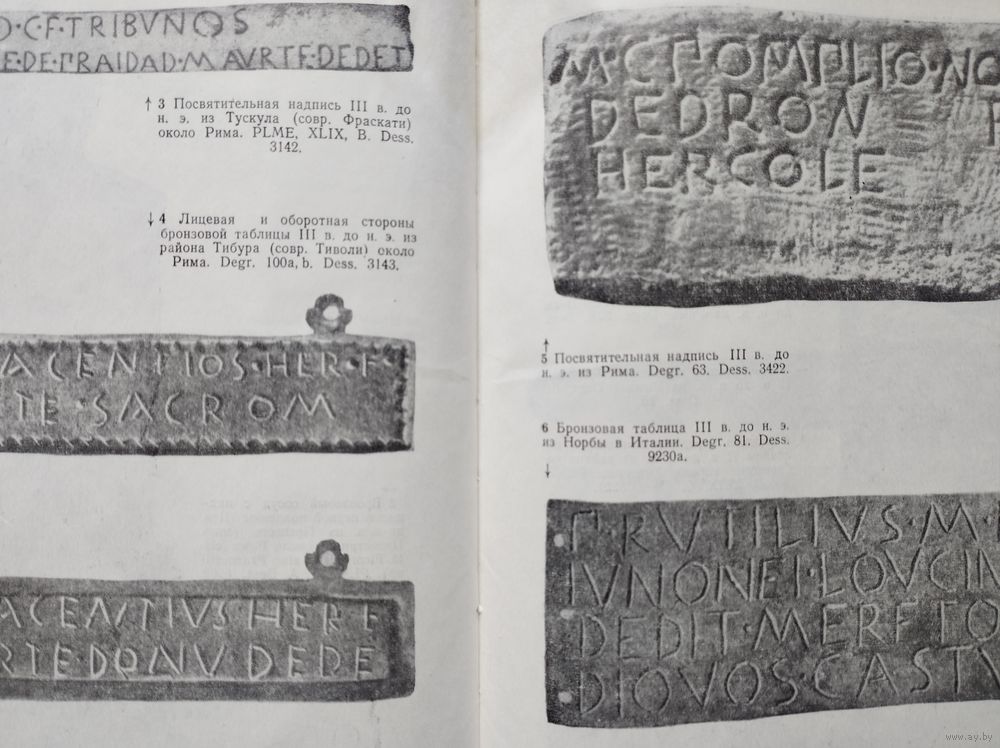 O·C·F·TRIBVNOS
E·DE·PRAIDAD·MAVRTE·DEDET
↑ 3 Посвятительная надпись III в. до
н. э. из Тускула (совр. Фраскати)
около Рима. PLME, XLIX, B. Dess.
3142.
↓ 4 Лицевая и оборотная стороны
бронзовой таблицы III в. до н. э. из
района Тибура (совр. Тиволи) около
Рима. Degr. 100a, b. Dess. 3143.
ACENTIOS·HER·F·
TE·SACROM
ACENTIVS HER F
RTE·DONV DEDE
M·C·POMPLIO·NO
DEDRON
HERCOLE
↑
5 Посвятительная надпись III в. до
н. э. из Рима. Degr. 63. Dess. 3422.
6 Бронзовая таблица III в. до н. э.
из Норбы в Италии. Degr. 81. Dess.
9230a.
↓
P·RVTILIVS·M·
IVNONEI·LOVCIN
DEDIT·MERETO
DIOVOS·CASTV
www.ay.by